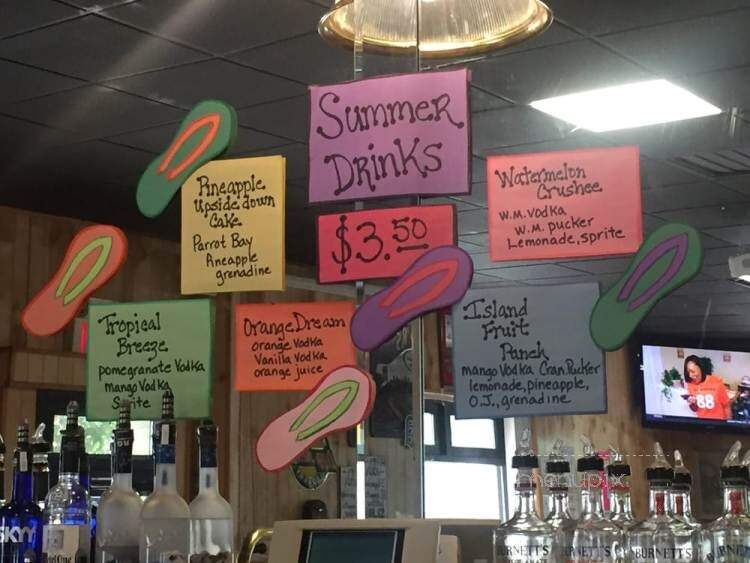 Summer
Drinks
$3.50
Pineapple
Upside down
Cake
Parrot Bay
Pineapple
grenadine
Watermelon
Crushee
W.M. Vodka
W.M. pucker
Lemonade, sprite
Tropical
Breeze
pomegranate Vodka
mango Vodka
Sprite
Orange Dream
orange Vodka
Vanilla Vodka
orange juice
Island
Fruit
Punch
mango Vodka Cran.Pucker
lemonade, pineapple,
O.J., grenadine
88
menupix
SKYY
BURNETT'S